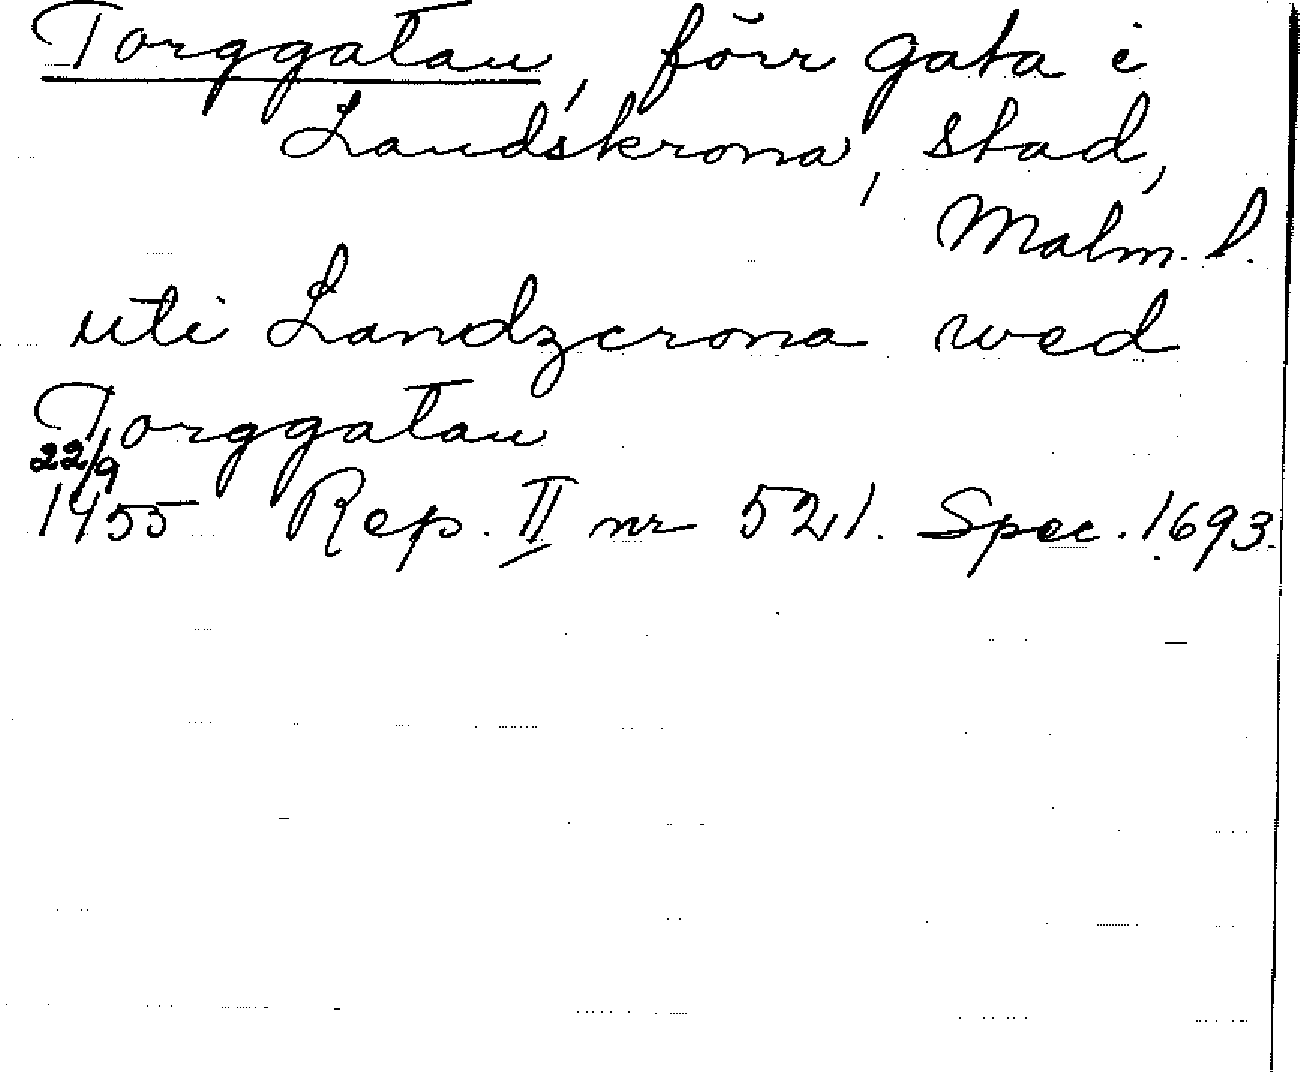 Torggatan, förr gata i
Landskrona, stad,
Malm. l.
uti Landzcrona wed
Torggatan
22/9
1755 Rep. II nr 521. Spec. 1693.